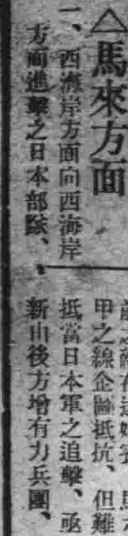 △馬來方面
一、西海岸方面向西海岸
方面進擊之日本部隊、
馬六
甲之線企圖抵抗、但難
抵當日本軍之追擊、亟
新山後方增有力兵團、